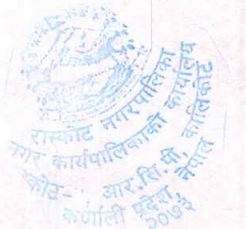 रास्कोट नगरपालिका
नगर कार्यपालिकाको कार्यालय
कोट- आर.सि.पी. कालिकोट
कर्णाली प्रदेश, नेपाल
२०७३